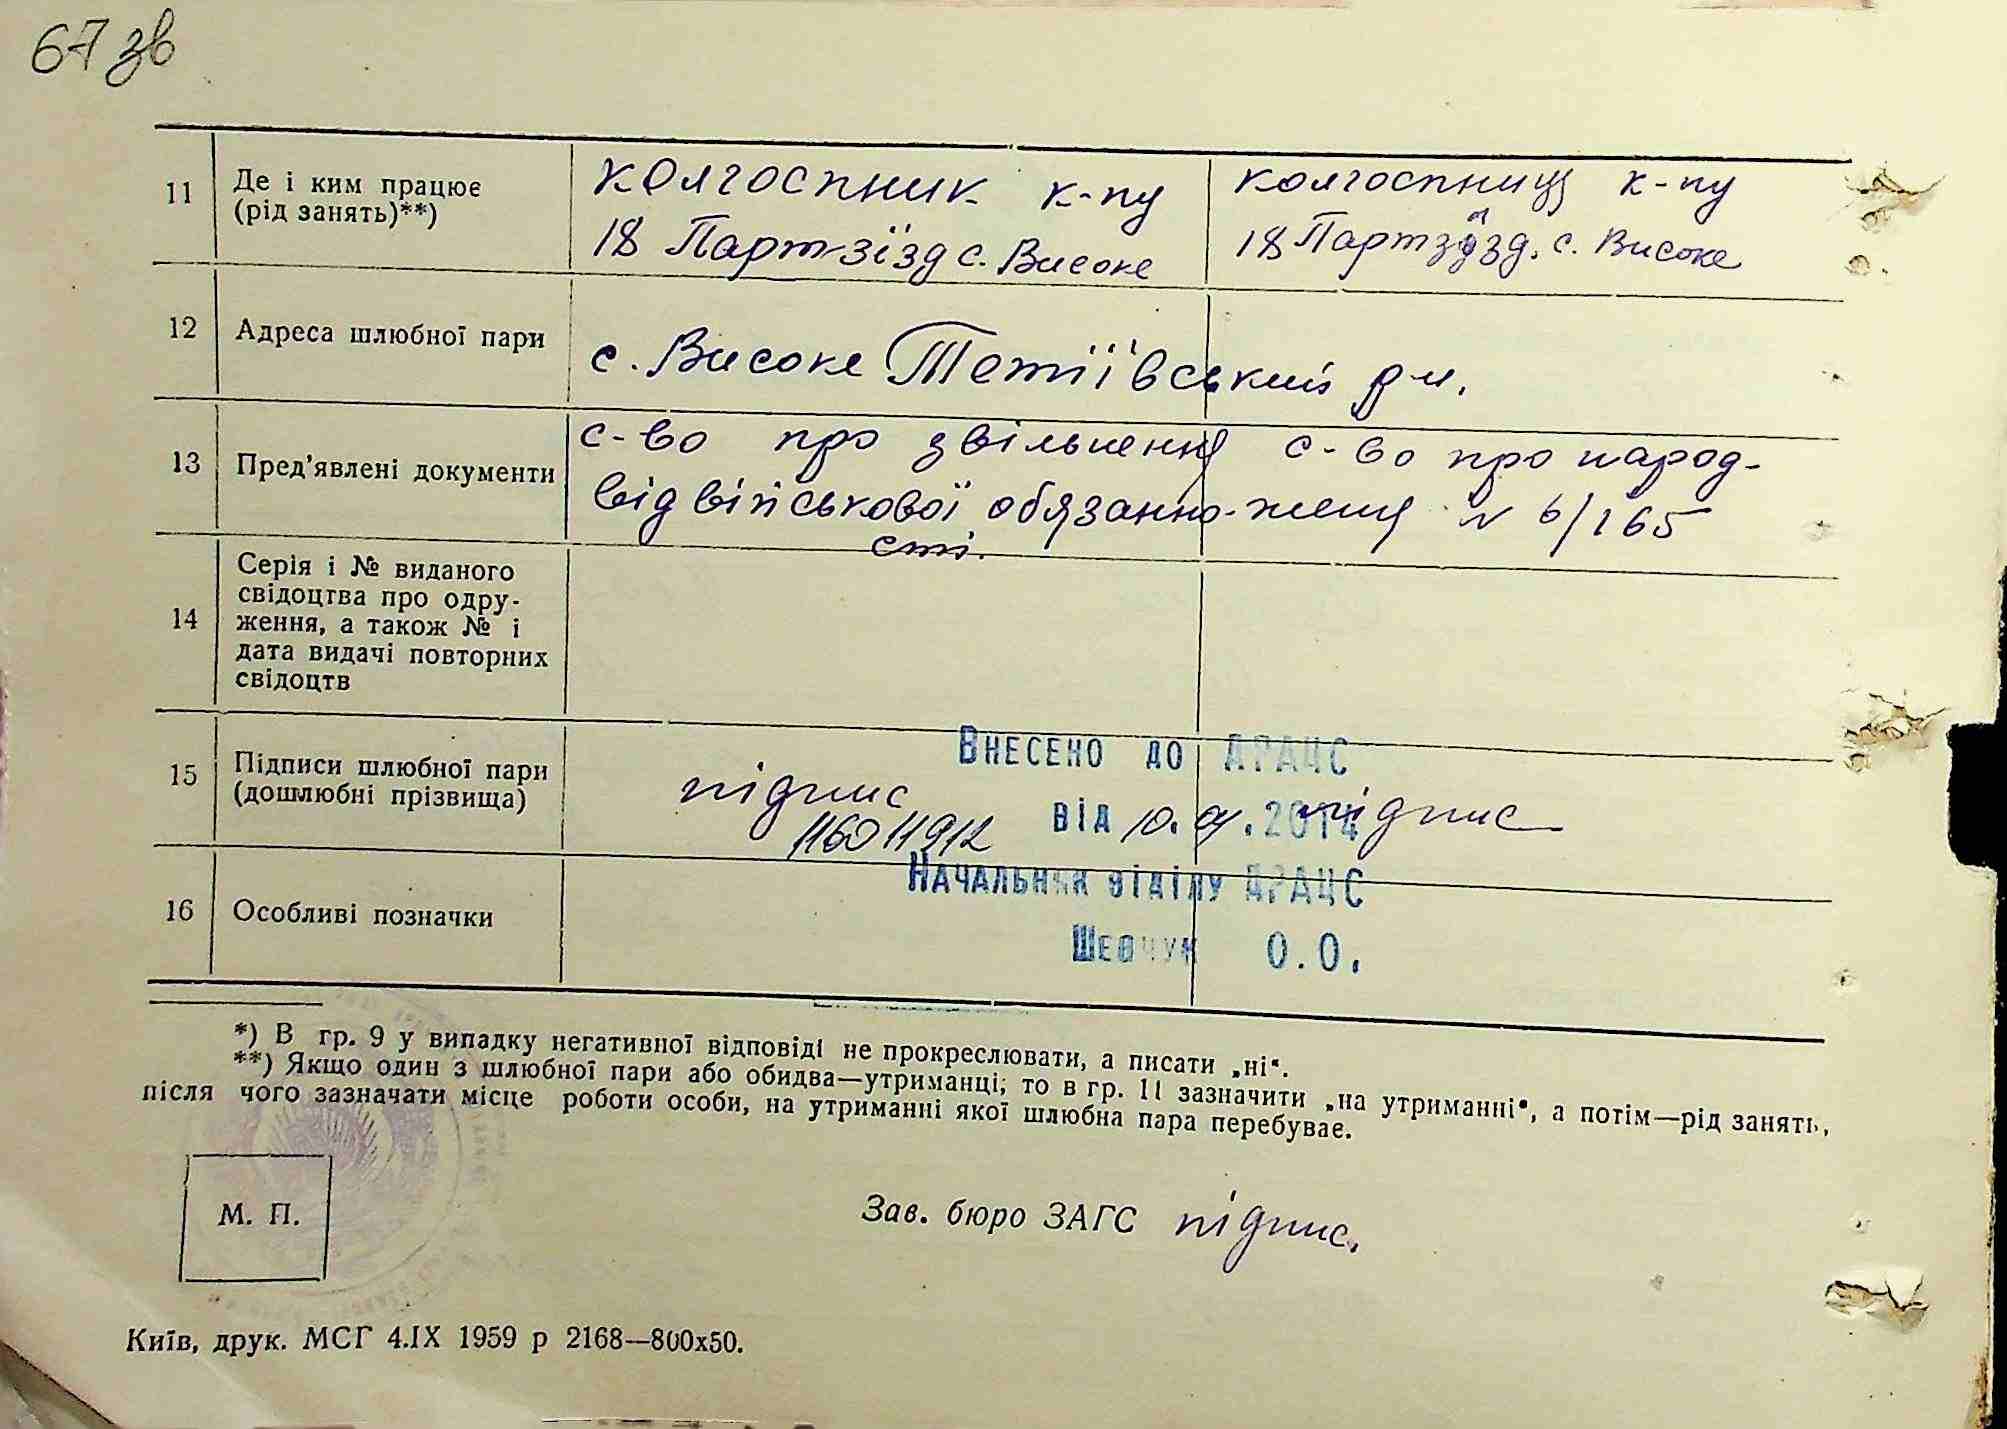 67 зв
11
Де і ким працює
(рід занять)**)
колгоспник к-пу
18 Партзїзд с. Високе
колгоспниця к-пу
18 Партзїзд. с. Високе
12
Адреса шлюбної пари
с. Високе Тетіївський р-н.
13
Пред'явлені документи
с-во про звільнення
від військової обязанно-
сті.
с-во про народ-
ження № 6/165
14
Серія і № виданого
свідоцтва про одру-
ження, а також № і
дата видачі повторних
свідоцтв
15
Підписи шлюбної пари
(дошлюбні прізвища)
підпис
підпис
Внесено до ДРАЦС
від 10. .2014
Начальник відділу ДРАЦС
Шевчук О.О.
16
Особливі позначки
*) В гр. 9 у випадку негативної відповіді не прокреслювати, а писати „ні“.
**) Якщо один з шлюбної пари або обидва—утриманці; то в гр. 11 зазначити „на утриманні“, а потім—рід занять,
після чого зазначати місце роботи особи, на утриманні якої шлюбна пара перебуває.
М. П.
Зав. бюро ЗАГС підпис.
Київ, друк. МСГ 4.IX 1959 р 2168—800х50.